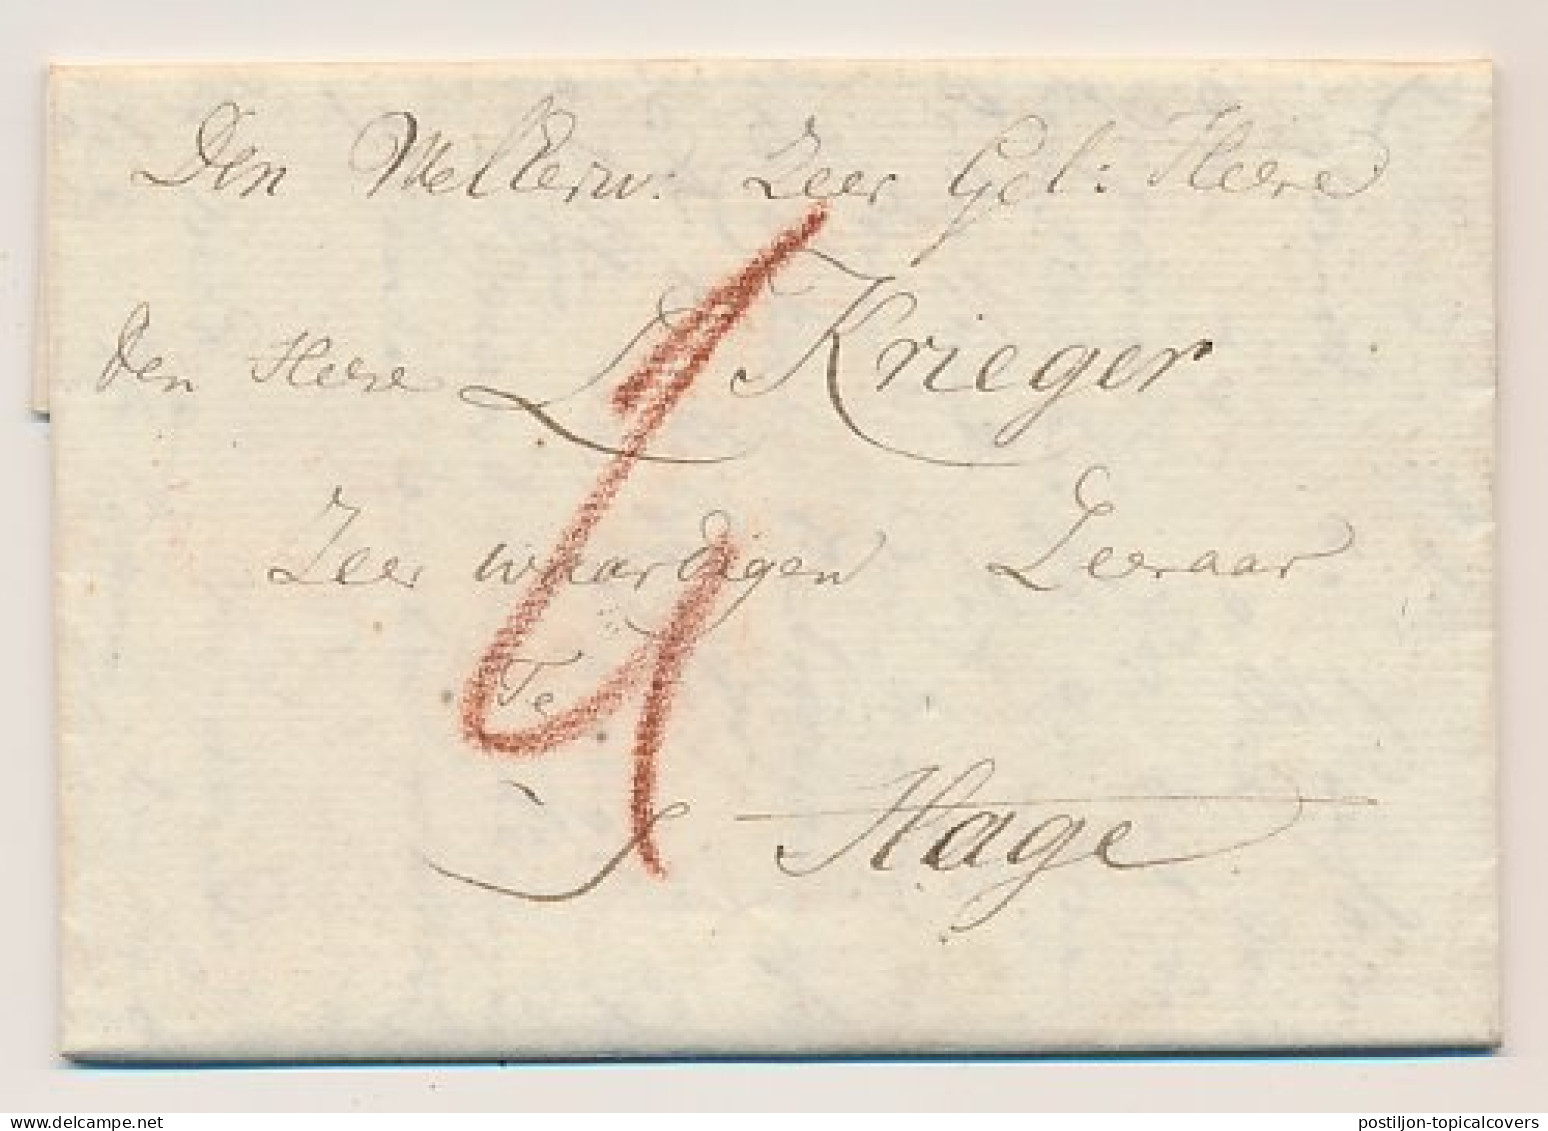 Den WelEerw: Zeer Gel: Heere
den Heere L Krieger
Zeer waardigen Leeraar
Te
S Hage
delcampe.net
postiljon-topicalcovers